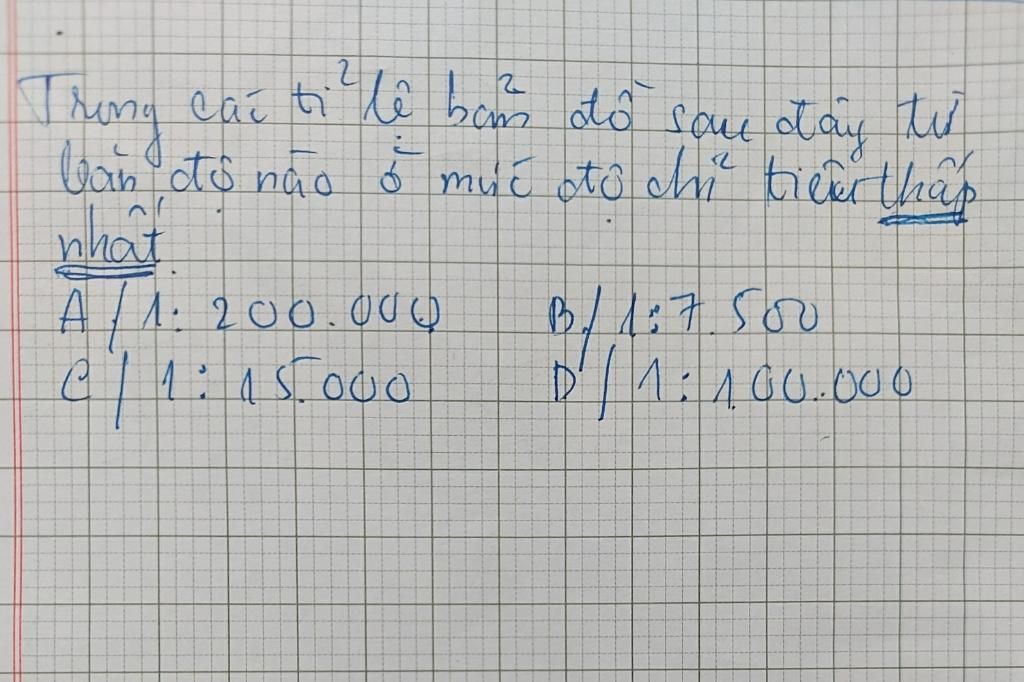 Trong các tỉ lệ bản đồ sau đây tờ
bản đồ nào ở mức độ chỉ tiết thấp
nhất.
A/ 1: 200.000 B/ 1:7.500
C/ 1: 15.000 D/ 1: 100.000